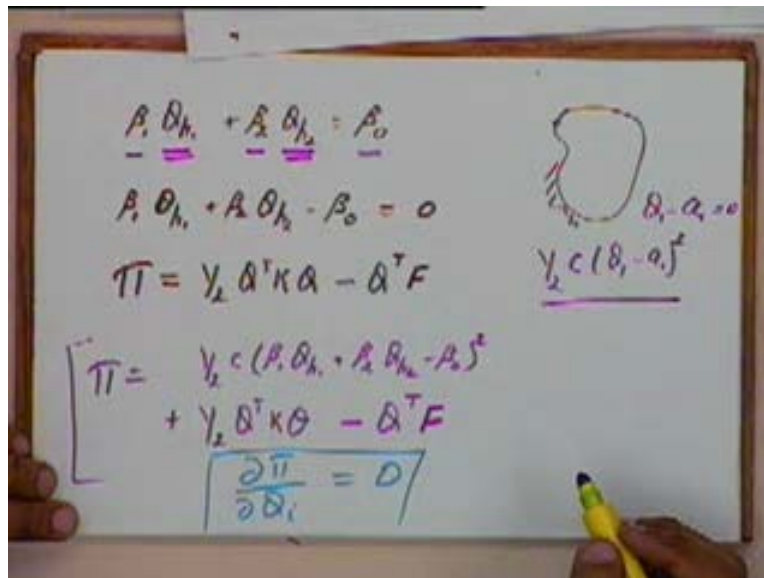 β₁ Q_{p₁} + β₂ Q_{p₂} = β₀
β₁ Q_{p₁} + β₂ Q_{p₂} - β₀ = 0
π = 1/2 Qᵀ K Q - Qᵀ F
π = 1/2 c (β₁ Q_{p₁} + β₂ Q_{p₂} - β₀)²
+ 1/2 Qᵀ K Q - Qᵀ F
∂π/∂Qᵢ = 0
Q₁ - a₁ = 0
1/2 c (Q₁ - a₁)²